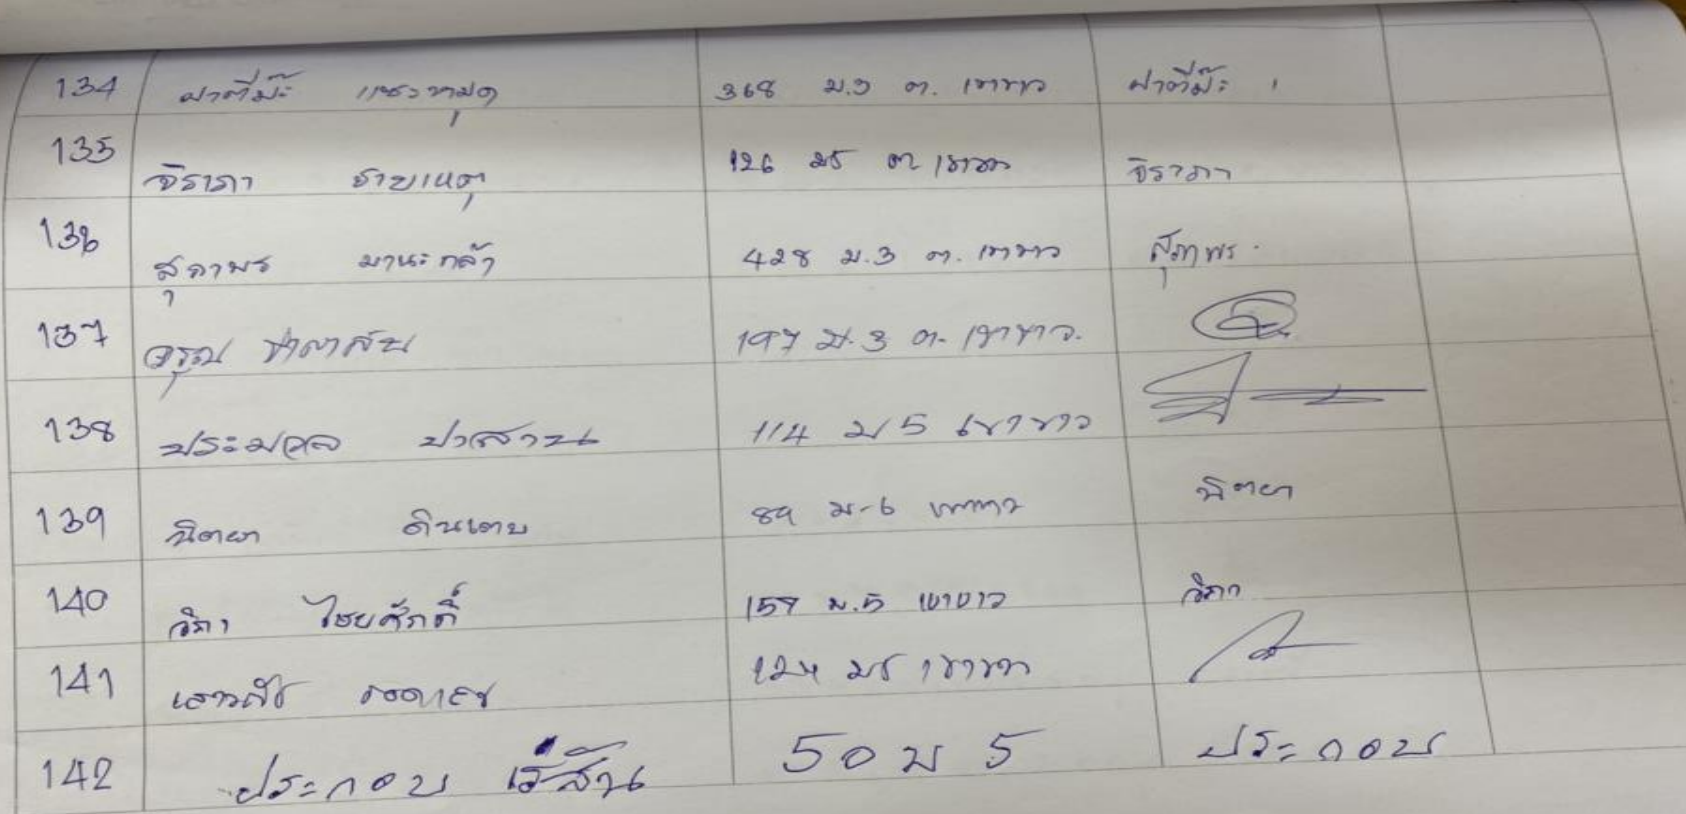 134 ฝาตีม๊ะ 368 ม.3 ต. เขาขาว ฝาตีม๊ะ
135 จิราภา ชายเหตุ 126 ม5 ต เขาขาว จิราภา
136 สุภาพร มานะกล้า 428 ม.3 ต. เขาขาว สุภาพร
137 จรูญ 197 ม.3 ต. เขาขาว.
138 ประมวล ปาสาน 114 ม 5 เขาขาว
139 นิตยา ดินเตบ 89 ม-6 เขาขาว นิตยา
140 วิภา ไชยศักดิ์ 159 ม.5 เขาขาว วิภา
141 124 ม5 เขาขาว
142 ประกอบ 50 ม 5 ประกอบ